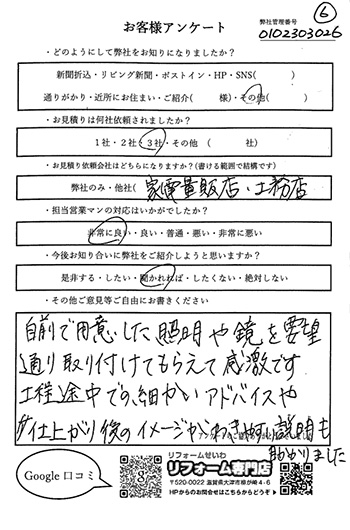 ⑥
お客様アンケート
弊社管理番号
0102303026
・どのようにして弊社をお知りになりましたか？
新聞折込・リビング新聞・ポストイン・HP・SNS(　　　)
通りがかり・近所にお住まい・ご紹介(　　　様)・その他(　　　)
・お見積りは何社依頼されましたか？
1社・2社・3社・その他（　　　社）
・お見積り依頼会社はどちらになりますか？(書ける範囲で結構です)
弊社のみ・他社(家電量販店・工務店
・担当営業マンの対応はいかがでしたか？
非常に良い・良い・普通・悪い・非常に悪い
・今後お知り合いに弊社をご紹介しようと思いますか？
是非する・したい・聞かれれば・したくない・絶対しない
・その他ご意見等ご自由にお書きください
自前で用意した照明や鏡を要望
通り取り付けてもらえて感激です
工程途中での、細かいアドバイスや
仕上がり後のイメージがわきやすい説明も
助かりました
Google 口コミ
リフォームせいわ
リフォーム専門店
〒520-0022 滋賀県大津市柳が崎4-6
HPからのお問合せはこちらからどうぞ